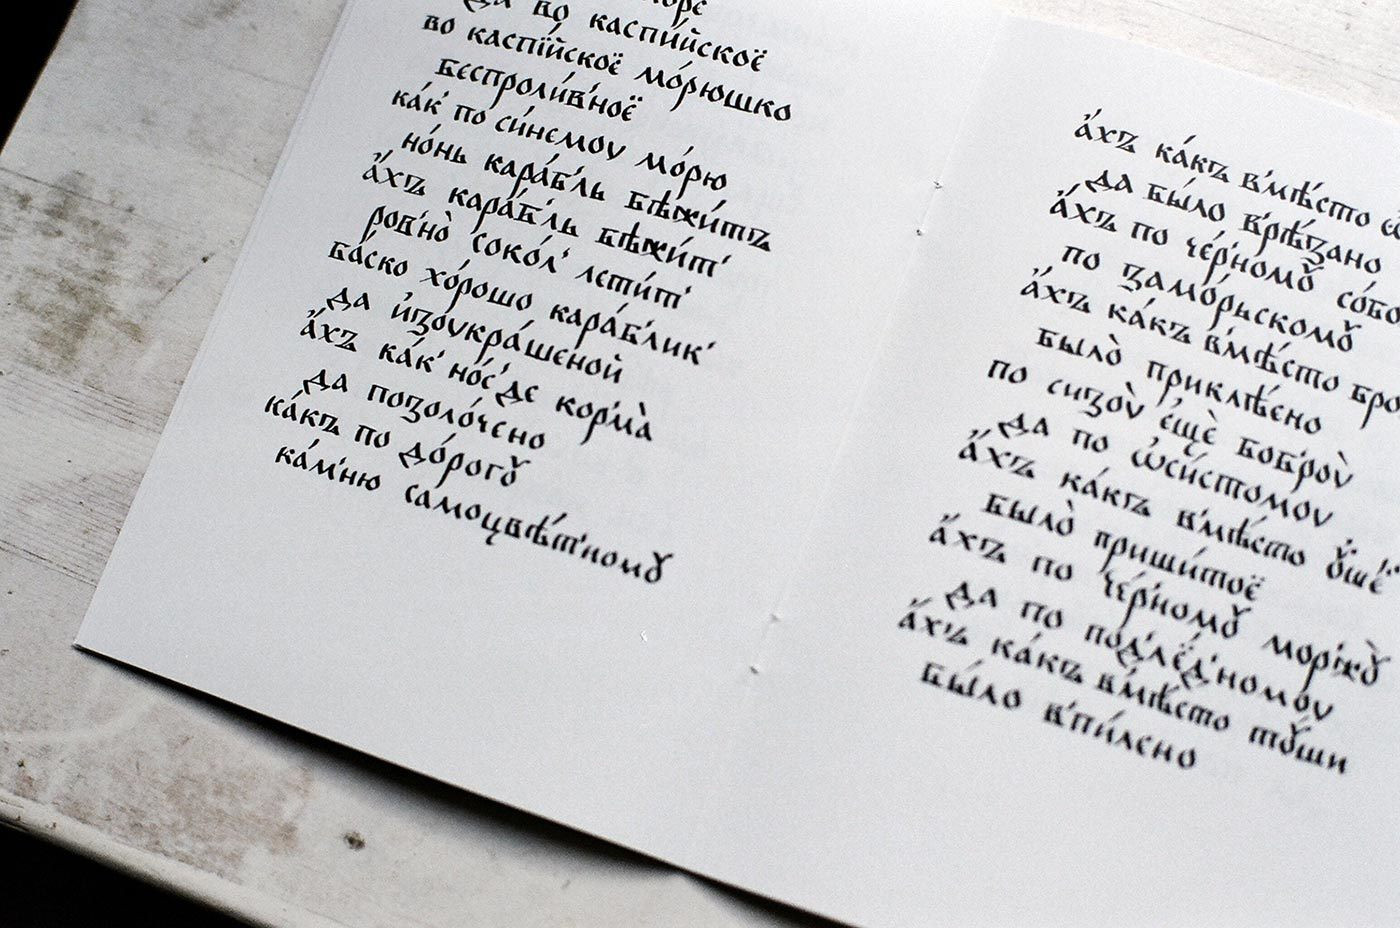 да во каспи́йскоё
во каспі́йскоё мо́рюшко
беспроли́в҆ноё
ка́к҆ по си́немоу мо́рю
но́нь кара́б҆ль бѣжи́тъ
а҆́хъ кара́б҆ль бѣжи́т҆
ров҆но̀ соко́л҆ лети́т҆
ба́ско хо́рошо кара́б҆лик҆
да и҆зоукра́шеной
а҆́хъ ка́к҆ но́с҆ де кор҆ма̀
да поꙁоло́чено
ка́къ по до́рогꙋ
ка́м҆ню самоцвѣ́т҆номꙋ
а҆́хъ ка́къ в҆мѣ́сто
да бы́ло в҆рѣ́ꙁано
а҆́хъ по че́р҆номꙋ
по ꙁамо́рьскомꙋ
а҆́хъ ка́къ в҆мѣ́сто
было̀ приклѣ́ено
по сиꙁоу̀ е҆щѐ боб҆роу̀
да по ѡ҆си́стомоу
а҆́хъ ка́къ в҆мѣ́сто
было̀ приши́тоё
а҆́хъ по че́р҆номꙋ мор҆жꙋ̀
да по под҆лё́д҆номоу
а҆́хъ ка́къ в҆мѣ́сто ꙋши
бы́ло в҆пи́лено